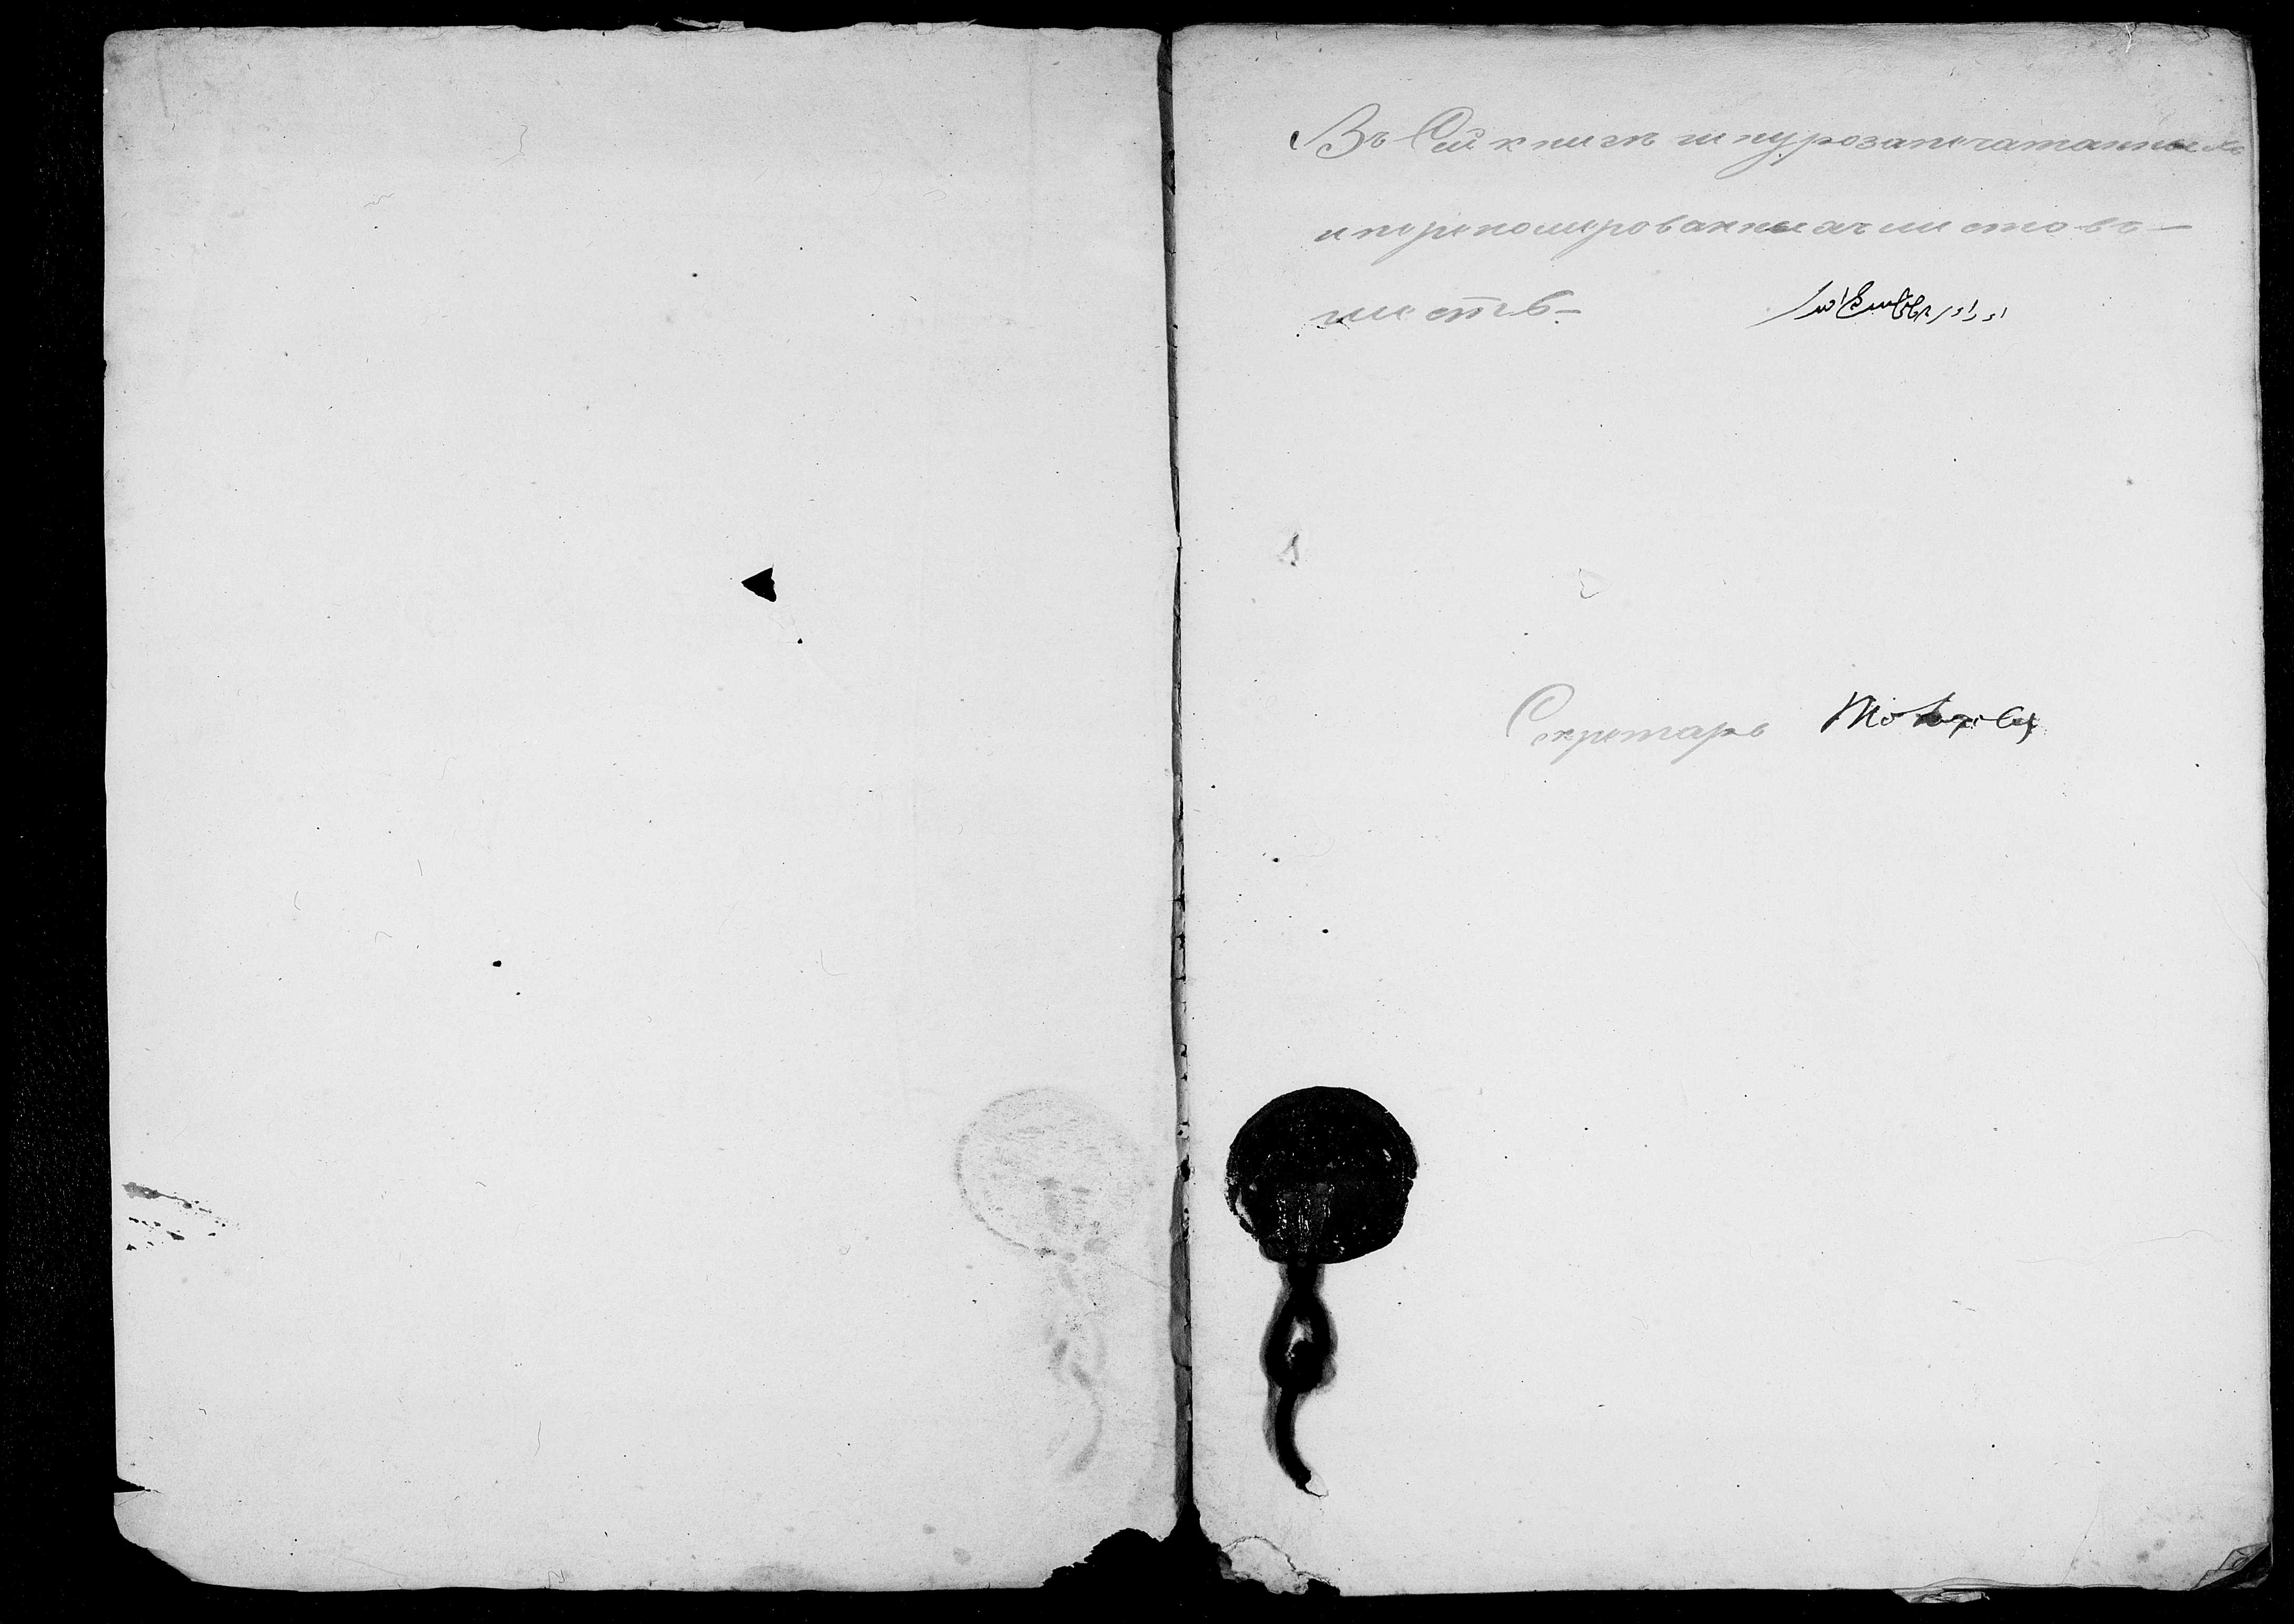 Въ Сей книгѣ шнурозапечатанныхъ
и переномерованныхъ листовъ —
шесть —
Секретарь